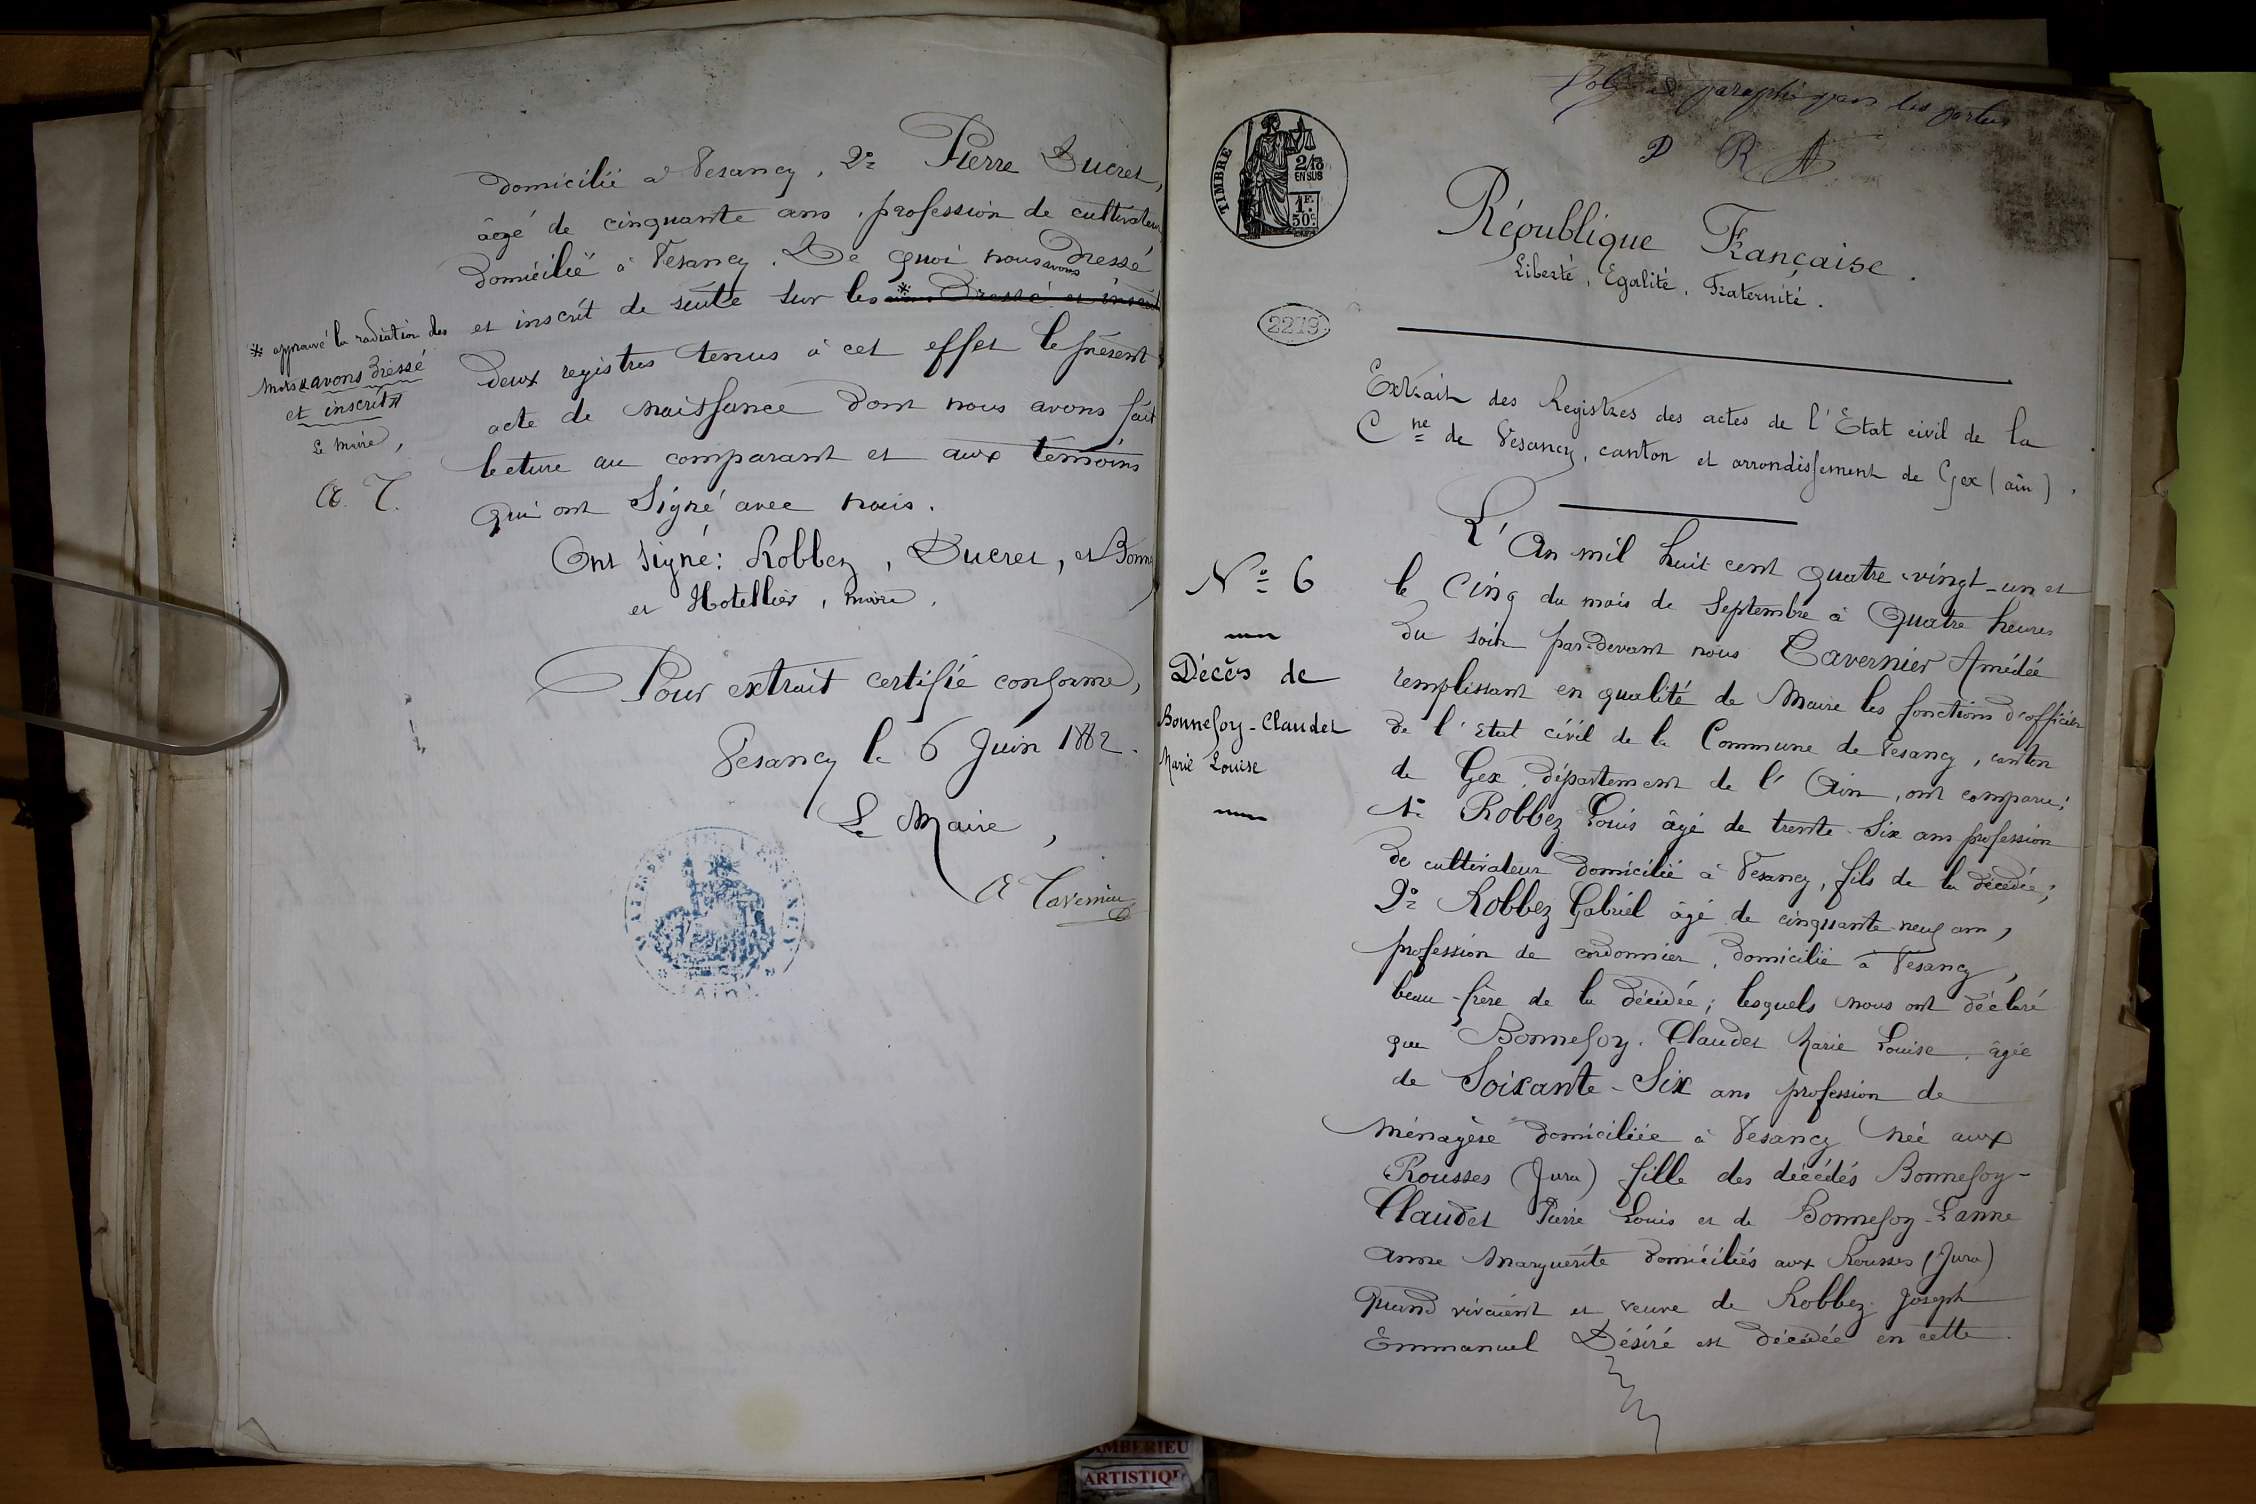 domicilié à Vesancy, 2º Pierre Ducret,
âgé de cinquante ans, profession de cultivateur
domicilié à Vesancy. De quoi nous avons dressé
et inscrit de suite sur les * avons dressé et inscrit
deux registres tenus à cet effet le présent
acte de naissance dont nous avons fait
lecture au comparant et aux témoins
qui ont signé avec nous.
Ont signé: Robbez, Ducret, et Bonne
et Hotellier, maire.
* approuvé la radiation des
mots « avons dressé
et inscrit »
Le Maire,
A. T.
Pour extrait certifié conforme,
Vesancy le 6 Juin 1882.
Le Maire,
A Tavernier
AIN
paraphé par les parties
D R A
TIMBRE
2/10
EN SUS
1F.
50c
République Française.
Liberté, Egalité, Fraternité.
2279
Extrait des Registres des actes de l'Etat civil de la
Cne de Vesancy, canton et arrondissement de Gex (ain).
L'An mil huit cent quatre-vingt-un et
Nº 6
le cinq du mois de Septembre à Quatre heures
du soir par-devant nous Tavernier Amédée
Décès de
Bonnefoy-Claudet
Marie Louise
remplissant en qualité de Maire les fonctions d'officier
de l'Etat civil de la Commune de Vesancy, canton
de Gex, département de l'Ain, ont comparu:
1º Robbez Louis âgé de trente-six ans profession
de cultivateur domicilié à Vesancy, fils de la décédée;
2º Robbez Gabriel âgé de cinquante-neuf ans,
profession de cordonnier, domicilié à Vesancy,
beau-frère de la décédée; lesquels nous ont déclaré
que Bonnefoy-Claudet Marie Louise, âgée
de Soixante-Six ans profession de
Ménagère domiciliée à Vesancy née aux
Rousses (Jura) fille des décédés Bonnefoy-
Claudet Pierre Louis et de Bonnefoy-Lanne
Anne Marguerite domiciliés aux Rousses (Jura)
quand vivaient et veuve de Robbez Joseph
Emmanuel Désiré est décédée en cette
AMBERIEU
ARTISTIQU